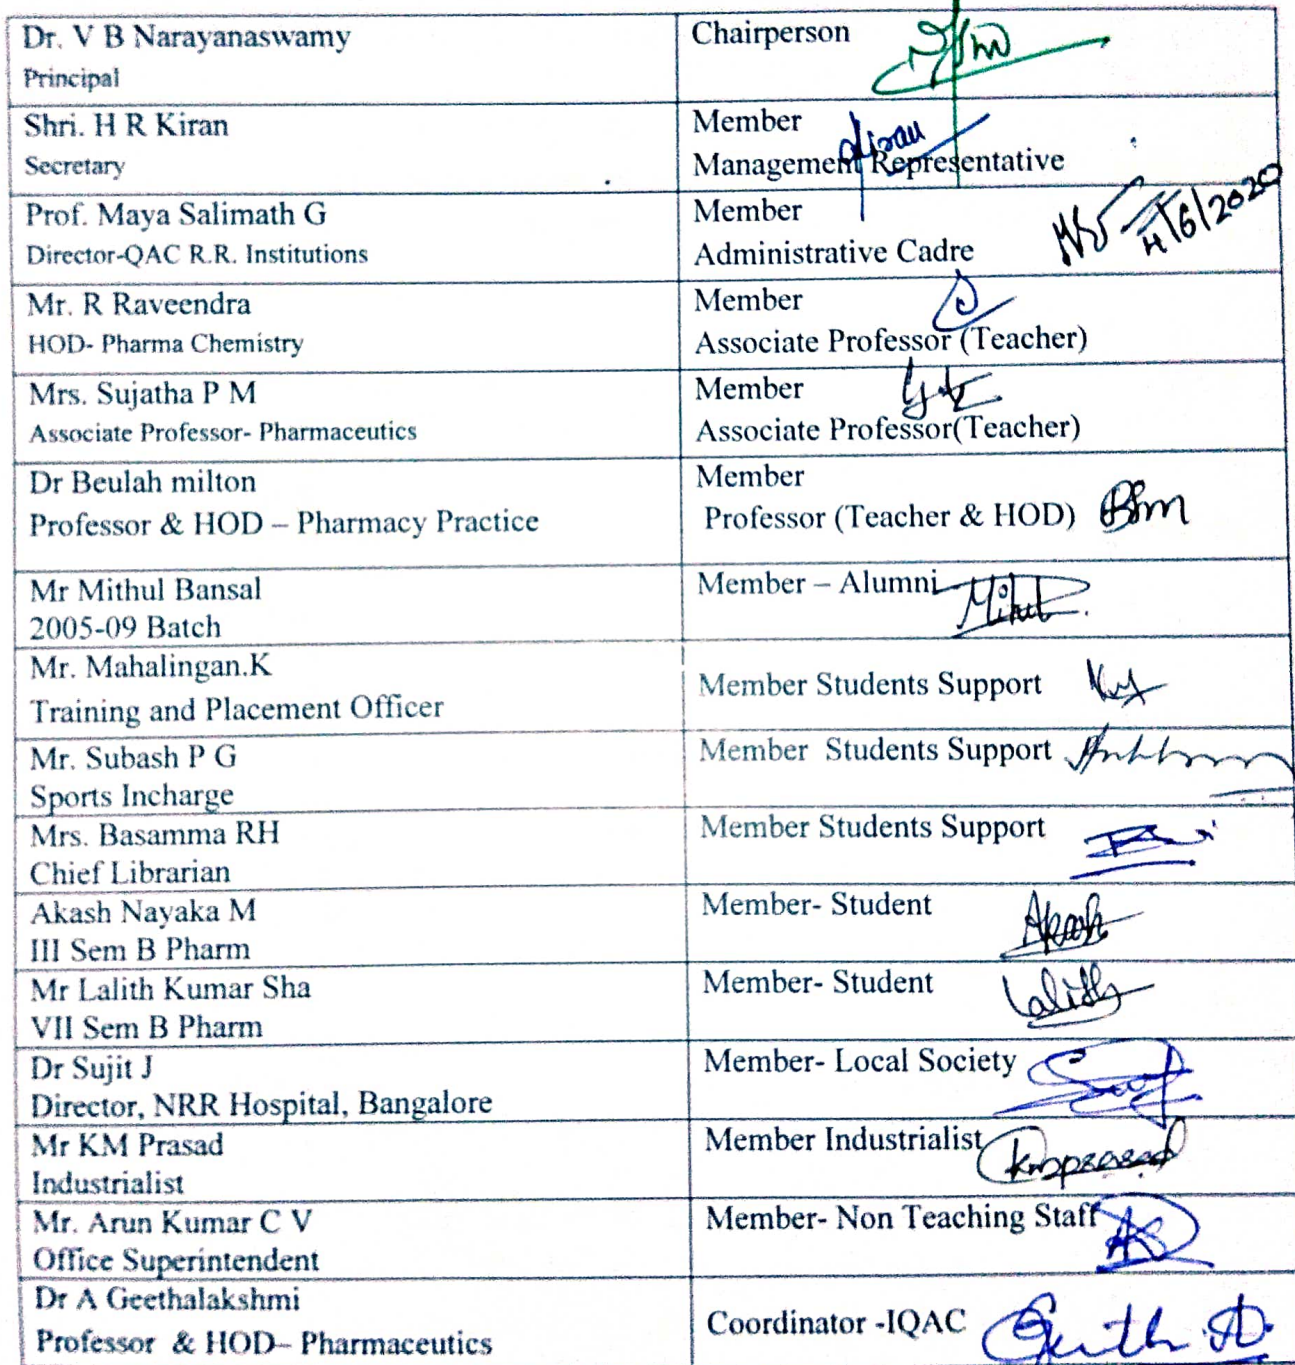 Dr. V B Narayanaswamy
Principal
Chairperson
Shri. H R Kiran
Secretary
Member
Management Representative
Prof. Maya Salimath G
Director-QAC R.R. Institutions
Member
Administrative Cadre
4/6/2020
Mr. R Raveendra
HOD- Pharma Chemistry
Member
Associate Professor (Teacher)
Mrs. Sujatha P M
Associate Professor- Pharmaceutics
Member
Associate Professor(Teacher)
Dr Beulah milton
Professor & HOD – Pharmacy Practice
Member
Professor (Teacher & HOD)
Mr Mithul Bansal
2005-09 Batch
Member – Alumni
Mr. Mahalingan.K
Training and Placement Officer
Member Students Support
Mr. Subash P G
Sports Incharge
Member Students Support
Mrs. Basamma RH
Chief Librarian
Member Students Support
Akash Nayaka M
III Sem B Pharm
Member- Student
Akash
Mr Lalith Kumar Sha
VII Sem B Pharm
Member- Student
Lalith
Dr Sujit J
Director, NRR Hospital, Bangalore
Member- Local Society
Mr KM Prasad
Industrialist
Member Industrialist
kmprasad
Mr. Arun Kumar C V
Office Superintendent
Member- Non Teaching Staff
Dr A Geethalakshmi
Professor & HOD– Pharmaceutics
Coordinator -IQAC